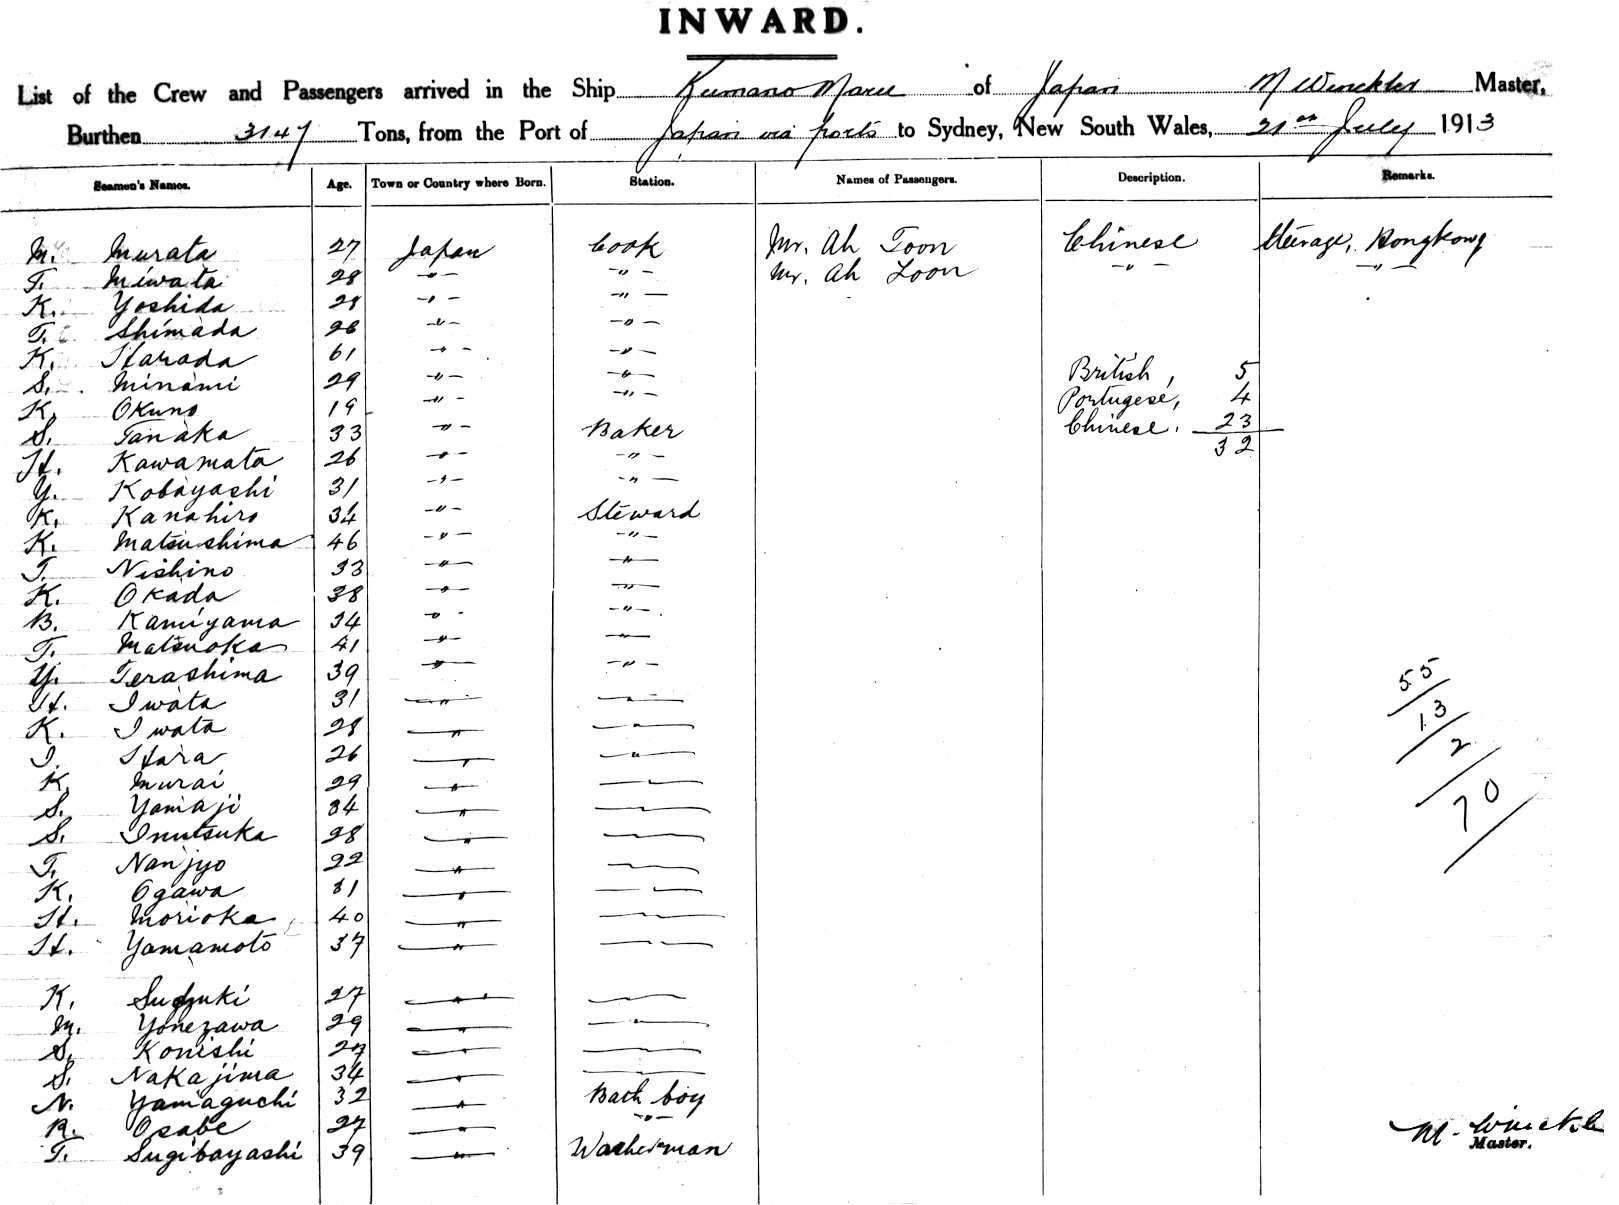 INWARD.
List of the Crew and Passengers arrived in the Ship Kumano Maru of Japan M Winckler Master,
Burthen 3147 Tons, from the Port of Japan via ports to Sydney, New South Wales, 21st July 1913
Seamen's Names. Age. Town or Country where Born. Station. Names of Passengers. Description. Remarks.
M. Murata 27 Japan Cook Mr. Ah Toon Chinese Steerage, Hongkong
T. Miwata 28 -"- -"- Mr. Ah Loon -"- -"-
K. Yoshida 28 -"- -"-
T. Shimada 28 -"- -"-
K. Harada 61 -"- -"-
S. Minami 29 -"- -"- British, 5
K. Okuno 19 -"- -"- Portugese, 4
S. Tanaka 33 -"- Baker Chinese. 23
H. Kawamata 26 -"- -"- 32
Y. Kobayashi 31 -"- -"-
K. Kanahiro 34 -"- Steward
K. Matsushima 46 -"- -"-
T. Nishino 33 -"- -"-
K. Okada 38 -"- -"-
B. Kamiyama 34 -"- -"-
T. Matsuoka 41 -"- -"-
Y. Terashima 39 -"- -"-
H. Iwata 31 -"- -"-
K. Iwata 28 -"- -"-
I. Hara 26 -"- -"-
K. Murai 29 -"- -"-
S. Yamaji 34 -"- -"-
S. Inutsuka 28 -"- -"-
T. Nanjyo 22 -"- -"-
K. Ogawa 31 -"- -"-
H. Morioka 40 -"- -"-
H. Yamamoto 37 -"- -"-
K. Sudzuki 27 -"- -"-
M. Yonezawa 29 -"- -"-
S. Konishi 27 -"- -"-
S. Nakajima 34 -"- -"-
N. Yamaguchi 32 -"- Bath boy
R. Osabe 27 -"- -"-
T. Sugibayashi 39 -"- Washerman
55
13
2
70
M. Winckle
Master.